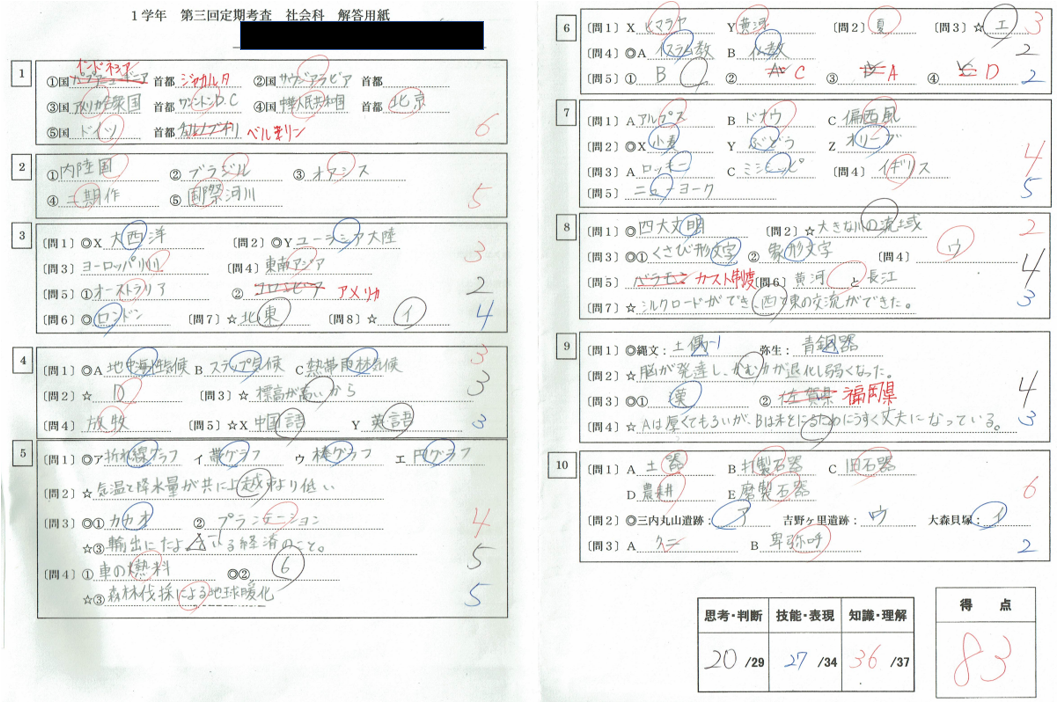 1学年 第三回定期考査 社会科 解答用紙
1
インドネシア
①国 首都 ジャカルタ ②国 サウジアラビア 首都
③国 アメリカ合衆国 首都 ワシントンD.C ④国 中華人民共和国 首都 北京
⑤国 ドイツ 首都 ベルリン
6
2
①内陸国 ② ブラジル ③ オアシス
④ 二期作 ⑤ 国際河川
5
3
〔問1〕◎X 大西洋 〔問2〕◎Y ユーラシア大陸
3
〔問3〕ヨーロッパ州 〔問4〕東南アジア
〔問5〕①オーストラリア ② アメリカ
2
〔問6〕◎ロンドン 〔問7〕☆ 北東 〔問8〕☆ イ
4
4
〔問1〕◎A 地中海性気候 B ステップ気候 C 熱帯雨林気候
3
〔問2〕☆ D 〔問3〕☆ 標高が高いから
3
〔問4〕 放牧 〔問5〕☆X 中国語 Y 英語
3
5
〔問1〕◎ア 折れ線グラフ イ 帯グラフ ウ 棒グラフ エ 円グラフ
〔問2〕☆気温と降水量が共に より低い
〔問3〕◎① カカオ ② プランテーション
4
☆③ 輸出にたよ いる経済のこと。
5
〔問4〕① 車の燃料 ◎② 6
☆③ 森林伐採による地球暖化
5
6
〔問1〕X ヒマラヤ Y 黄河 〔問2〕 夏 〔問3〕☆ エ
3
〔問4〕◎A イスラム教 B 仏教
2
〔問5〕① B ② C ③ A ④ D
2
7
〔問1〕A アルプス B ドナウ C 偏西風
〔問2〕◎X 小麦 Y ぶどう Z オリーブ
4
〔問3〕A ロッキー C ミシシッピ 〔問4〕 イギリス
〔問5〕 ニューヨーク
5
8
〔問1〕◎ 四大文明 〔問2〕☆ 大きな川の流域
2
〔問3〕◎① くさび形文字 ② 象形文字 〔問4〕 ウ
4
〔問5〕 カースト制度 〔問6〕 黄河 と 長江
〔問7〕☆シルクロードができ西東の交流ができた。
3
9
〔問1〕◎縄文: 土偶 弥生: 青銅器
〔問2〕☆脳が発達し、かむ力が退化し弱くなった。
4
〔問3〕◎① 粟 ② 佐賀県 福岡県
〔問4〕☆ Aは厚くてもろいが、Bは うすく丈夫になっている。
3
10
〔問1〕A 土器 B 打製石器 C 旧石器
D 農耕 E 磨製石器
6
〔問2〕◎三内丸山遺跡: ア 吉野ヶ里遺跡: ウ 大森貝塚: イ
〔問3〕A クニ B 卑弥呼
2
思考・判断 技能・表現 知識・理解
20 /29 27 /34 36 /37
得 点
83